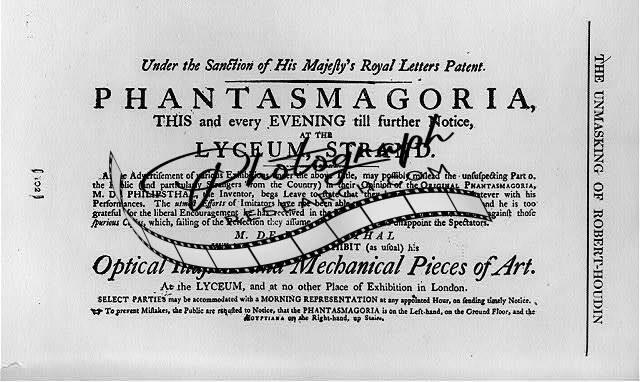 Under the Sanction of His Majeſty's Royal Letters Patent.
PHANTASMAGORIA,
THIS and every EVENING till further Notice,
AT THE
LYCEUM, STRAND.
Photograph
Advertiſement of various Exhibitions under the above Title, may poſſibly miſlead the unſuſpecting Part o
the Public (and particularly Strangers from the Country) in their Opinion of the ORIGINAL PHANTASMAGORIA,
M. DE PHILIPSTHAL, the Inventor, begs Leave to ſtate that they have no whatever with his
Performances. The utmoſt Efforts of Imitators have not been able and he is too
grateful for the liberal Encouragement he has received in the againſt thoſe
ſpurious which, failing of the Perfection they aſſume, diſappoint the Spectators.
M. DE PHILIPSTHAL
EXHIBIT (as uſual) his
Optical Illuſions and Mechanical Pieces of Art.
At the LYCEUM, and at no other Place of Exhibition in London.
SELECT PARTIES may be accommodated with a MORNING REPRESENTATION at any appointed Hour, on ſending timely Notice.
To prevent Miſtakes, the Public are requeſted to Notice, that the PHANTASMAGORIA is on the Left-hand, on the Ground Floor, and the
ÆGYPTIANA on the Right-hand, up Stairs.
THE UNMASKING OF ROBERT-HOUDIN